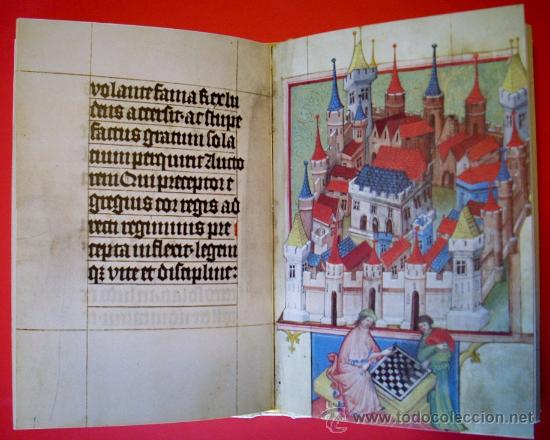 volante fama Rex lu
dens accersit ac stupe
factus gratum sola
tium perquirit Aucto
rem Qui preceptor e
gregius cor regis ad
recti regiminis pre
cepta inflexit legem
qz vite et discipline:
www.todocoleccion.net